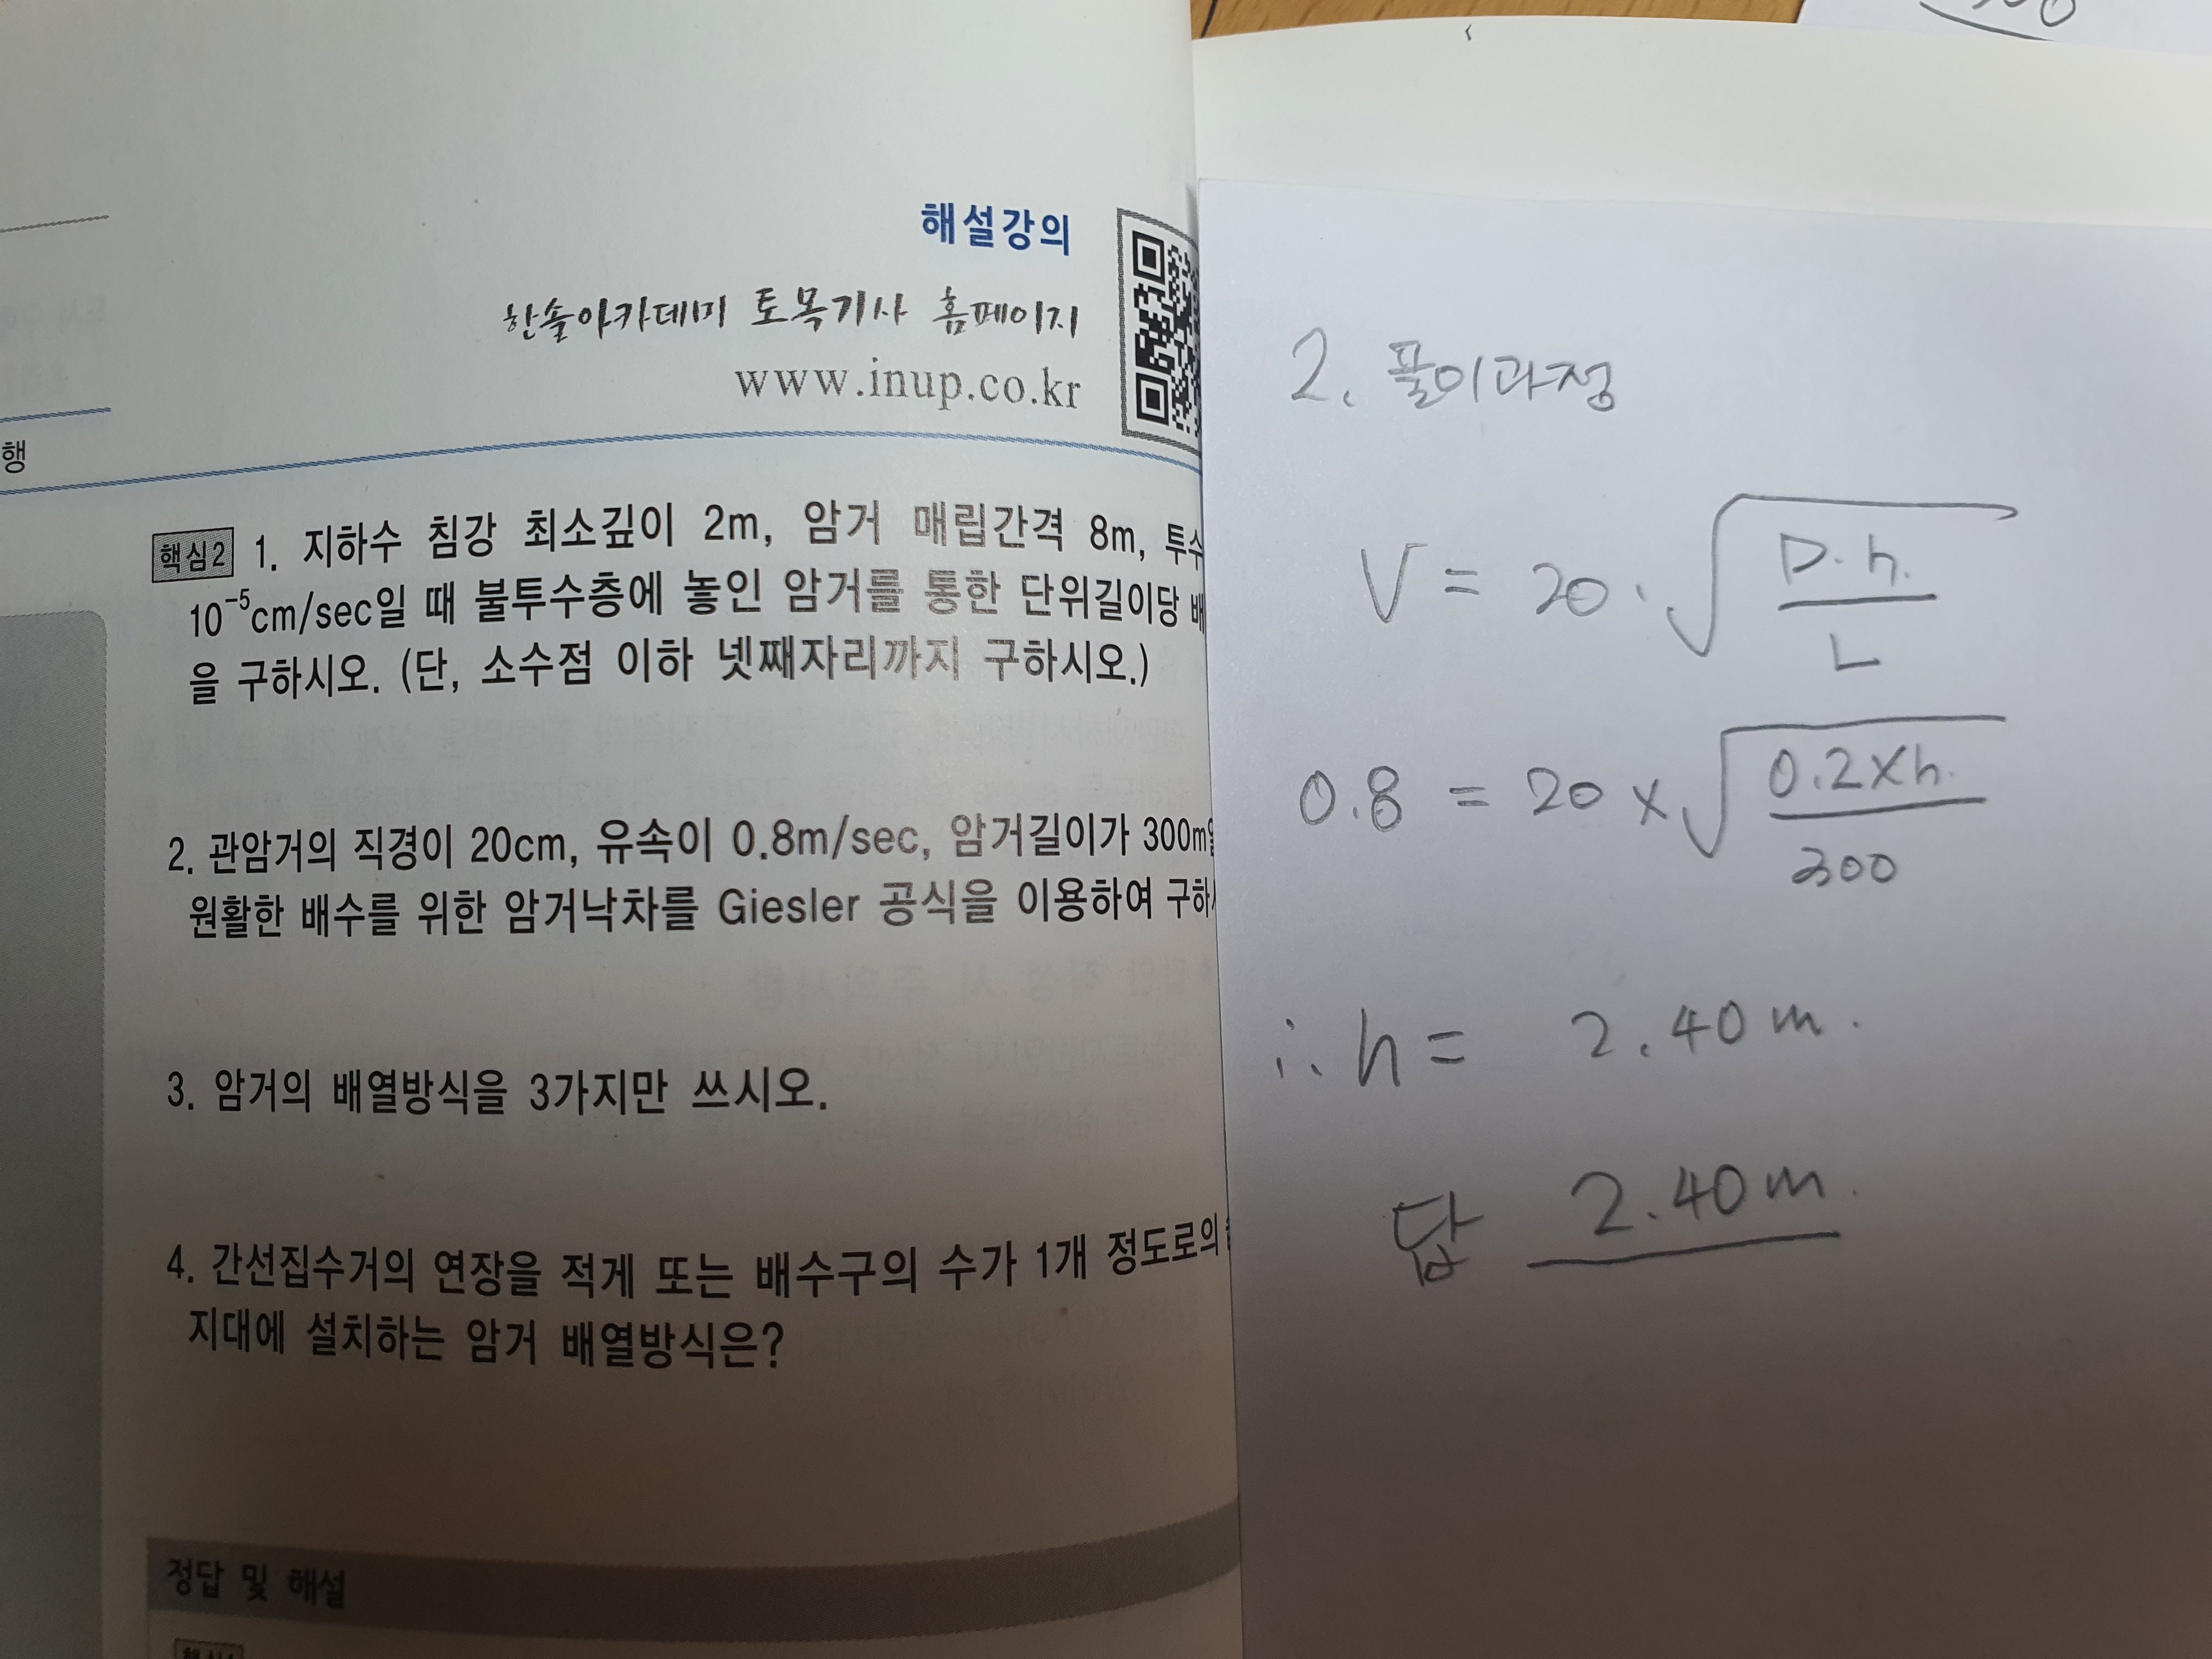 해설강의
한솔아카데미 토목기사 홈페이지
www.inup.co.kr
행
핵심2 1. 지하수 침강 최소깊이 2m, 암거 매립간격 8m, 투수
10⁻⁵cm/sec일 때 불투수층에 놓인 암거를 통한 단위길이당 배
을 구하시오. (단, 소수점 이하 넷째자리까지 구하시오.)
2. 관암거의 직경이 20cm, 유속이 0.8m/sec, 암거길이가 300m일
원활한 배수를 위한 암거낙차를 Giesler 공식을 이용하여 구하
3. 암거의 배열방식을 3가지만 쓰시오.
4. 간선집수거의 연장을 적게 또는 배수구의 수가 1개 정도로의
지대에 설치하는 암거 배열방식은?
정답 및 해설
2. 풀이과정
V = 20 · √(D·h. / L)
0.8 = 20 × √(0.2×h. / 300)
∴ h = 2.40 m.
답 2.40 m.